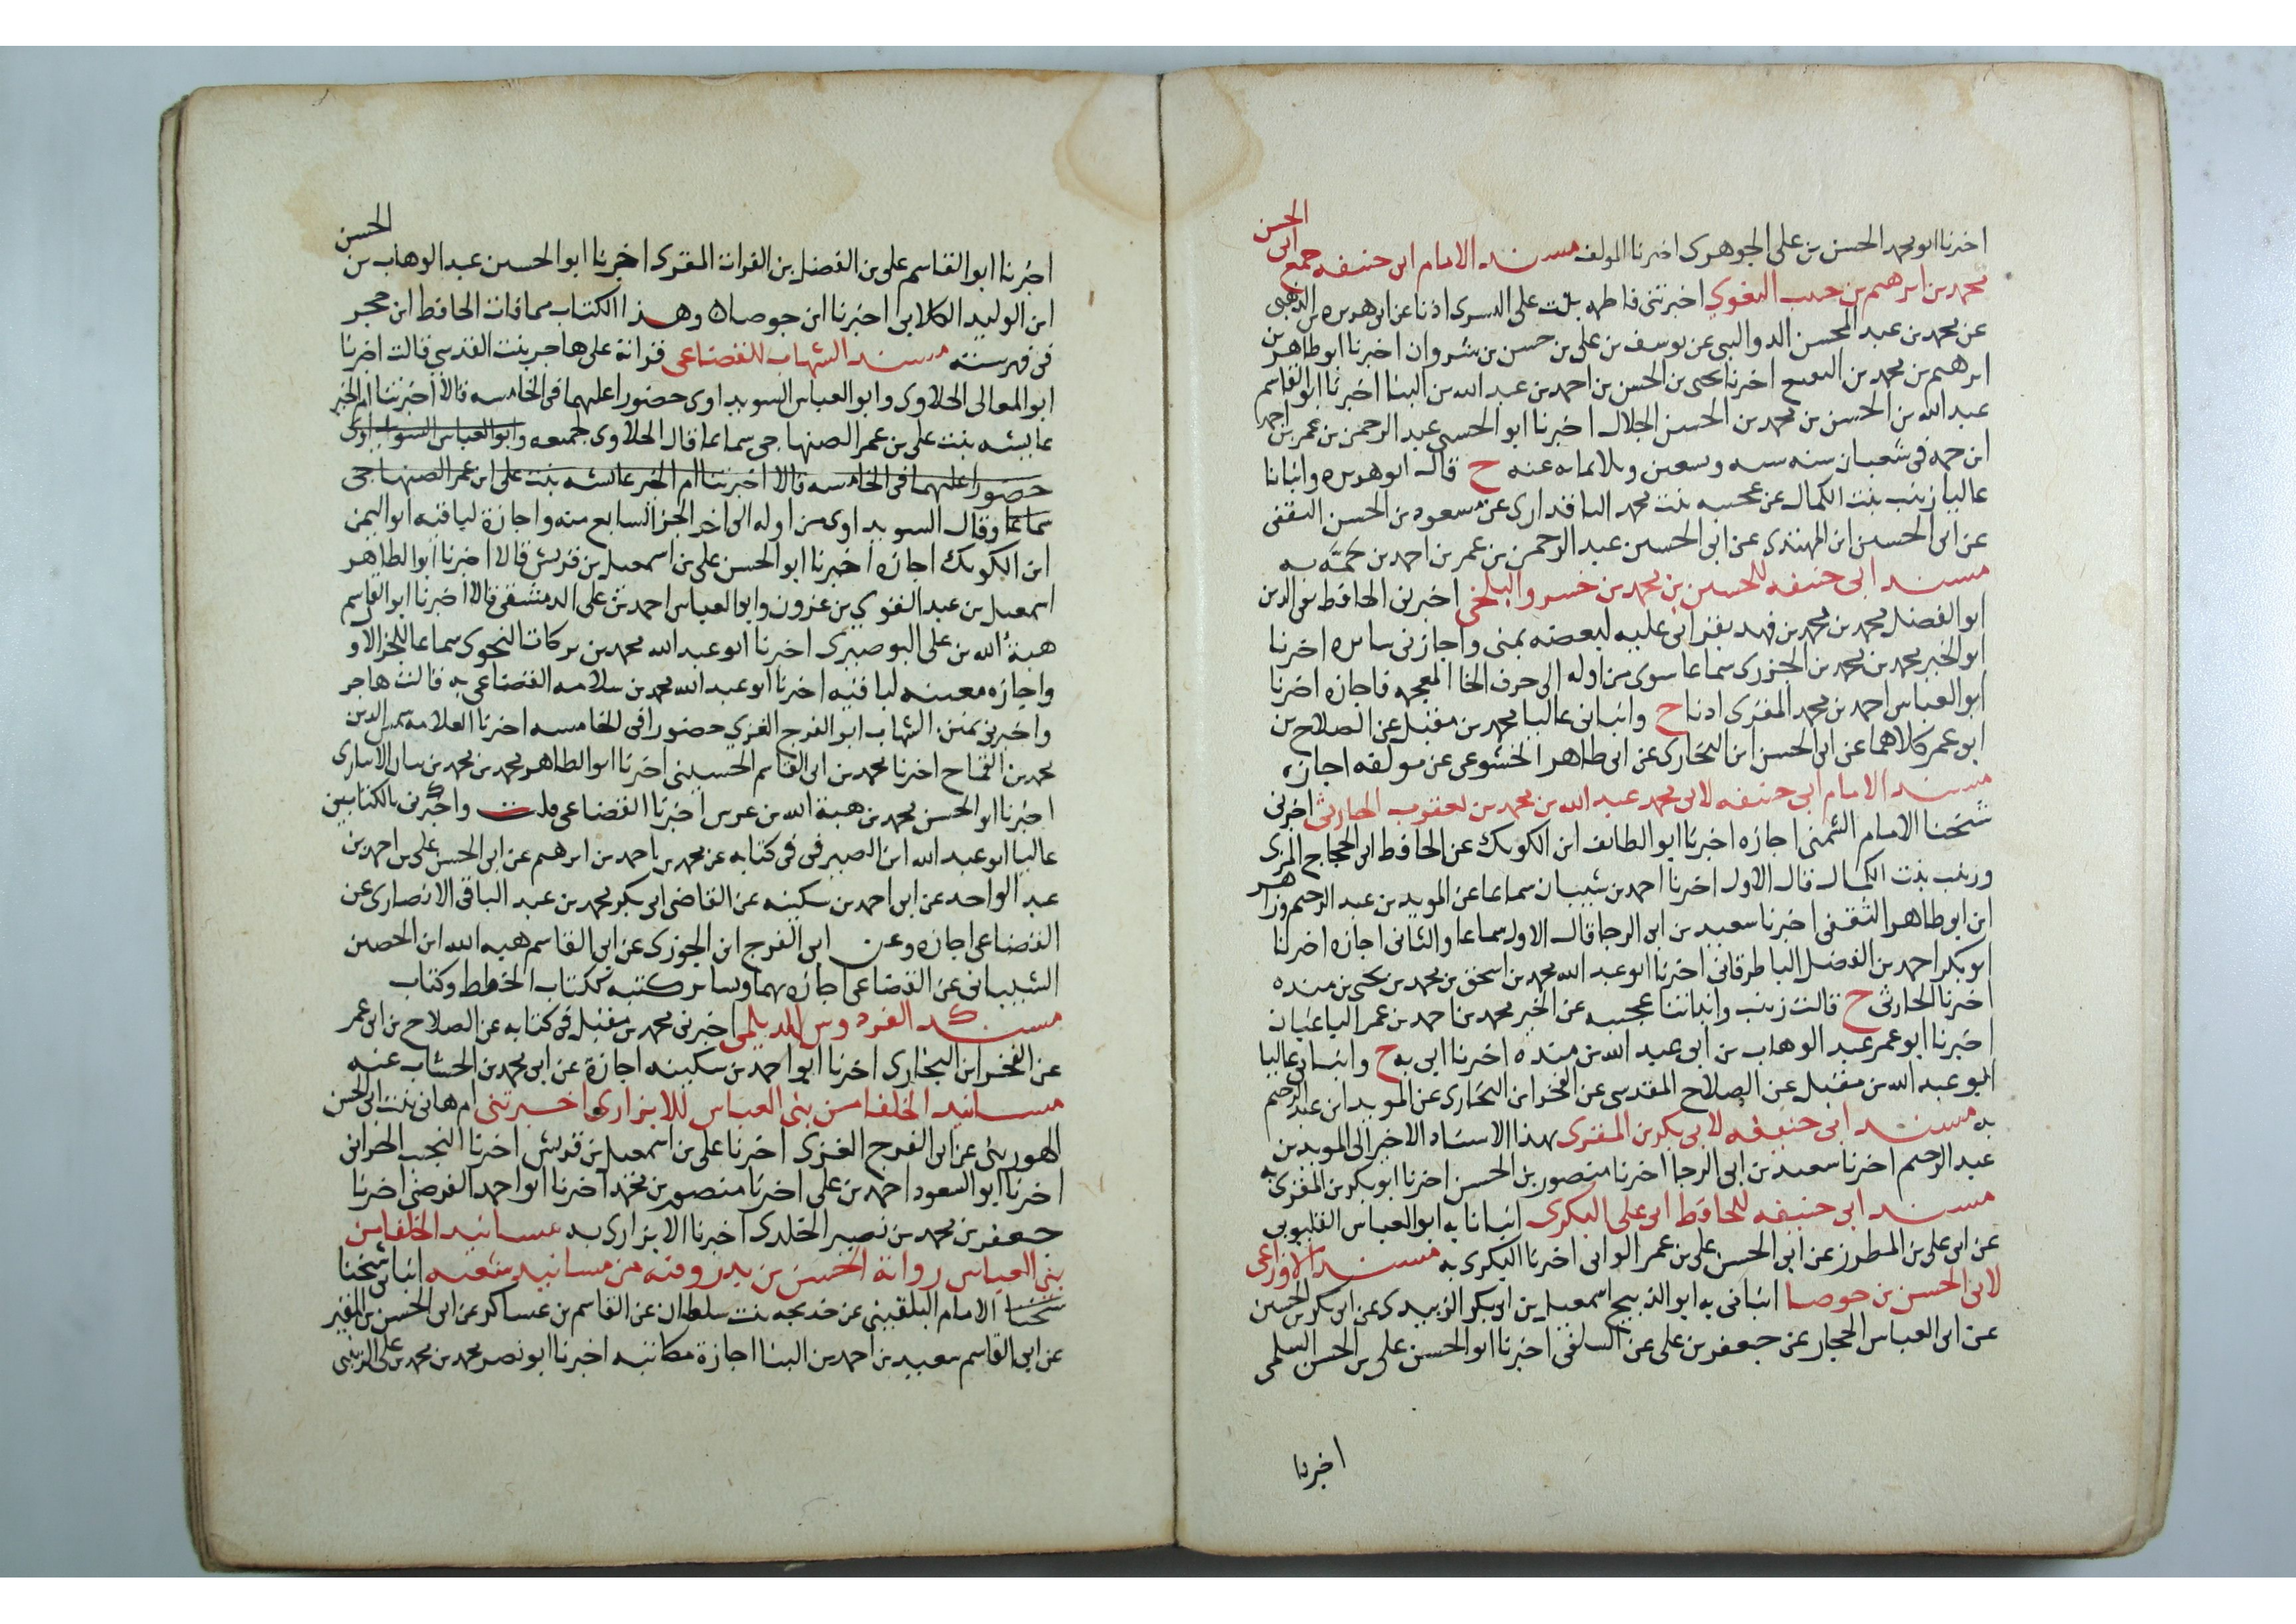 اخبرنا ابو محمد الحسن بن على الجوهرى اخبرنا المولف مسند الامام ابى حنيفه جمع ابى الحسن
محمد بن ابرهيم بن حبيب البغوى اخبرتنى فاطمه بنت على اليسرى اذنا عن ابى هريره بن الذهبى
عن محمد بن عبد المحسن الدواليبى عن يوسف بن على بن حسن بن شروان اخبرنا ابو طاهر بن
ابرهيم بن محمد بن اخبرنا يحيى بن الحسن بن احمد بن عبد الله بن البنا اخبرنا ابو القاسم
عبد الله بن الحسن بن محمد بن الحسن الخلال اخبرنا ابو الحسن عبد الرحمن بن عمر بن احمد
ابن حمه فى شعبان سنه وتسعين وثلاثمايه عنه ح قال ابو هريره وانبانا
عاليا زينب بنت الكمال عن عجيبه بنت محمد الباقدارى عن مسعود بن الحسن الثقفى
عن ابى الحسين ابن المهتدى عن ابى الحسين عبد الرحمن بن عمر بن احمد بن حمّه به
مسند ابى حنيفه للحسين بن محمد بن خسرو البلخى اخبرنى الحافظ تقى الدين
ابو الفضل محمد بن محمد بن فهد بقراتى عليه لبعضه بمنى واجازنى سايره اخبرنا
ابو الخير محمد بن محمد بن الجزرى سماعا سوى من اوله الى حرف الخا المعجمه فاجازه اخبرنا
ابو العباس احمد بن محمد المقرى اذنا ح وانبانى عاليا محمد بن مقبل عن الصلاح بن
ابو عمر كلاهما عن ابى الحسن ابن البخارى عن ابى طاهر الخشوعى عن مولفه اجازه
مسند الامام ابى حنيفه لابى محمد عبد الله بن محمد بن يعقوب الحارثى اخبرنى
شيخنا الامام الشمنى اجازه اخبرنا ابو الطاهر ابن الكويك عن الحافظ ابى الحجاج المزى
وزينب بنت الكمال قال الاول اخبرنا احمد بن شيبان سماعا عن المويد بن عبد الرحيم وزاهر
ابن ابو طاهر الثقفى اخبرنا سعيد بن ابى الرجا قال الاول سماعا والثانى اجازه اخبرنا
ابو بكر احمد بن الفضل الباطرقانى اخبرنا ابو عبد الله محمد بن اسحق بن محمد بن يحيى بن منده
اخبرنا الحارثى ح قالت زينب وانباتنا عجيبه عن الخير محمد بن احمد بن عمر الباغبان
اخبرنا ابو عمر عبد الوهاب بن ابى عبد الله بن منده اخبرنا ابى به ح وانبانى عاليا
ابو عبد الله بن مقبل عن الصلاح المقدسى عن الفخر ابن البخارى عن المويد ابن عبد الرحيم
به مسند ابى حنيفه لابى بكر بن المقرى بهذا الاسناد الاخير الى المويد بن
عبد الرحيم اخبرنا سعيد بن ابى الرجا اخبرنا منصور بن الحسن اخبرنا ابو بكر بن المقرى به
مسند ابى حنيفه للحافظ ابى على البكرى انبانا به ابو العباس القليوبى
عن ابى على بن المطرز عن ابى الحسن على بن عمر الوانى اخبرنا البكرى به مسند الاوزاعى
لابى الحسن بن جوصا انبانى به ابو الذبيح اسمعيل بن ابى بكر الزبيدى عن ابى بكر بن الحسين
عن ابى العباس الحجار عن جعفر بن على عن السلفى اخبرنا ابو الحسن على بن الحسن السلمى
اخبرنا
اخبرنا ابو القاسم على بن الفضل بن الفرات المقرى اخبرنا ابو الحسين عبد الوهاب بن الحسن
ابن الوليد الكلابى اخبرنا ابن جوصا ه وهذا الكتاب مما فات الحافظ ابن حجر
فى فهرسته مسند الشهاب للقضاعى قراة على هاجر بنت القدسى قالت اخبرنا
ابو المعالى الحلاوى وابو العباس السويداوى حضورا عليهما فى الخامسه قالا اخبرتنا ام الخير
عايشه بنت على بن عمر الصنهاجى سماعا قال الحلاوى جميعه وابو العباس السويداوى
حضورا عليهما فى الخامسه قالا اخبرتنا ام الخير عايشه بنت على ابن عمر الصنهاجى
سماعا وقال السويداوى من اوله الى اخر الجز السابع منه واجازة لباقيه ابو اليمن
ابن الكويك اجازه اخبرنا ابو الحسن على بن اسمعيل بن قريش قالا اخبرنا ابو الطاهر
اسمعيل بن عبد القوى بن عزون وابو العباس احمد بن على الدمشقى قالا اخبرنا ابو القاسم
هبة الله بن على البوصيرى اخبرنا ابو عبد الله محمد بن بركات النحوى سماعا للجز الاو
واجازه معينه لباقيه اخبرنا ابو عبد الله محمد بن سلامه القضاعى به قالت هاجر
واخبرنى الشهاب ابو الفرج الغزى حضورا فى الخامسه اخبرنا العلامه شمس الدين
محمد بن القماح اخبرنا محمد بن ابى القاسم الحسينى اخبرنا ابو الطاهر محمد بن محمد بن بيان الانبارى
اخبرنا ابو الحسن محمد بن هبة الله بن عرس اخبرنا القضاعى قلت واخبرنى بالكتابين
عاليا ابو عبد الله ابن الصيرفى فى كتابه عن محمد بن احمد بن ابرهيم عن ابى الحسن على بن احمد بن
عبد الواحد عن ابى احمد بن سكينه عن القاضى ابى بكر محمد بن عبد الباقى الانصارى عن
القضاعى اجازه وعن ابى الفرج ابن الجوزى عن ابى القاسم هبه الله ابن الحصين
الشيبانى عن القضاعى اجازه بهما وساير كتبه ككتاب الخطط وكتاب
مسند الفردوس للديلمى اخبرنى محمد بن مقبل فى كتابه عن الصلاح بن ابى عمر
عن الفخر ابن البخارى اخبرنا ابو احمد بن سكينه اجازة عن ابى محمد بن الخشاب عنه
مسانيد الخلفا من بنى العباس للابزارى اخبرتنى ام هانى بنت ابى الحسن
الهورينى عن ابى الفرج الغزى اخبرنا على بن اسمعيل بن قريش اخبرنا النجيب الحرانى
اخبرنا ابو السعود احمد بن على اخبرنا منصور بن محمد اخبرنا ابو احمد الفرضى اخبرنا
جعفر بن محمد بن نصير الخلدى اخبرنا الابزارى به مسانيد الخلفا من
بنى العباس رواية الحسن بن بدر وفيه من مسانيد شعبه انبانى شيخنا
شيخنا الامام البلقينى عن خديجه بنت سلطان عن القاسم بن عساكر عن ابى الحسن بن المقير
عن ابى القاسم سعيد بن احمد بن البنا اجازة مكاتبه اخبرنا ابو نصر محمد بن محمد بن على الزينبى